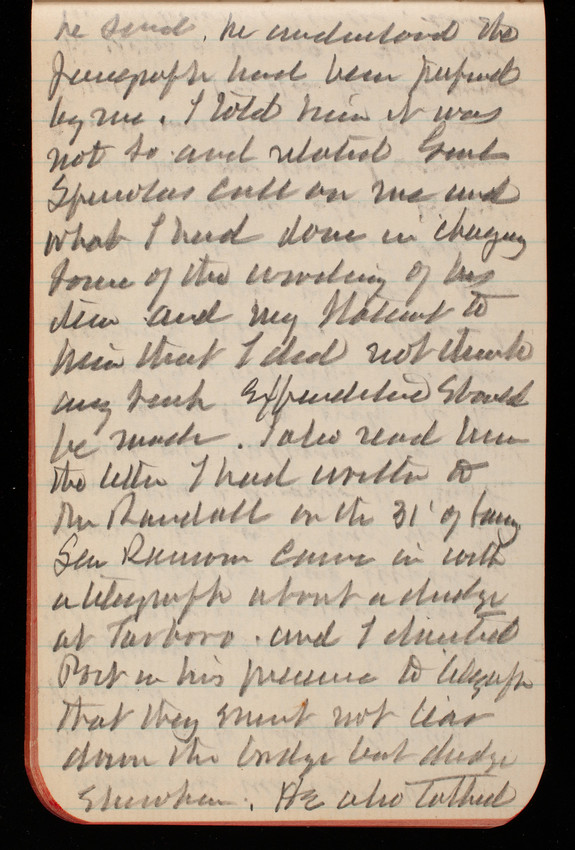 he said, he understood the
paragraph had been prepared
by me. I told him it was
not so and related Genl
Spinolas call on me and
what I had done in changing
some of the wording of his
item and my statement to
him that I did not think
any such Expenditure should
be made. I also read him
the letter I had written to
Mr Randall on the 31' of
Sen Ransom came in with
a telegraph about a dredge
at Tarboro. and I directed
Post in his presence to telegraph
that they must not tear
down the bridge but dredge
Elsewhere. He also talked